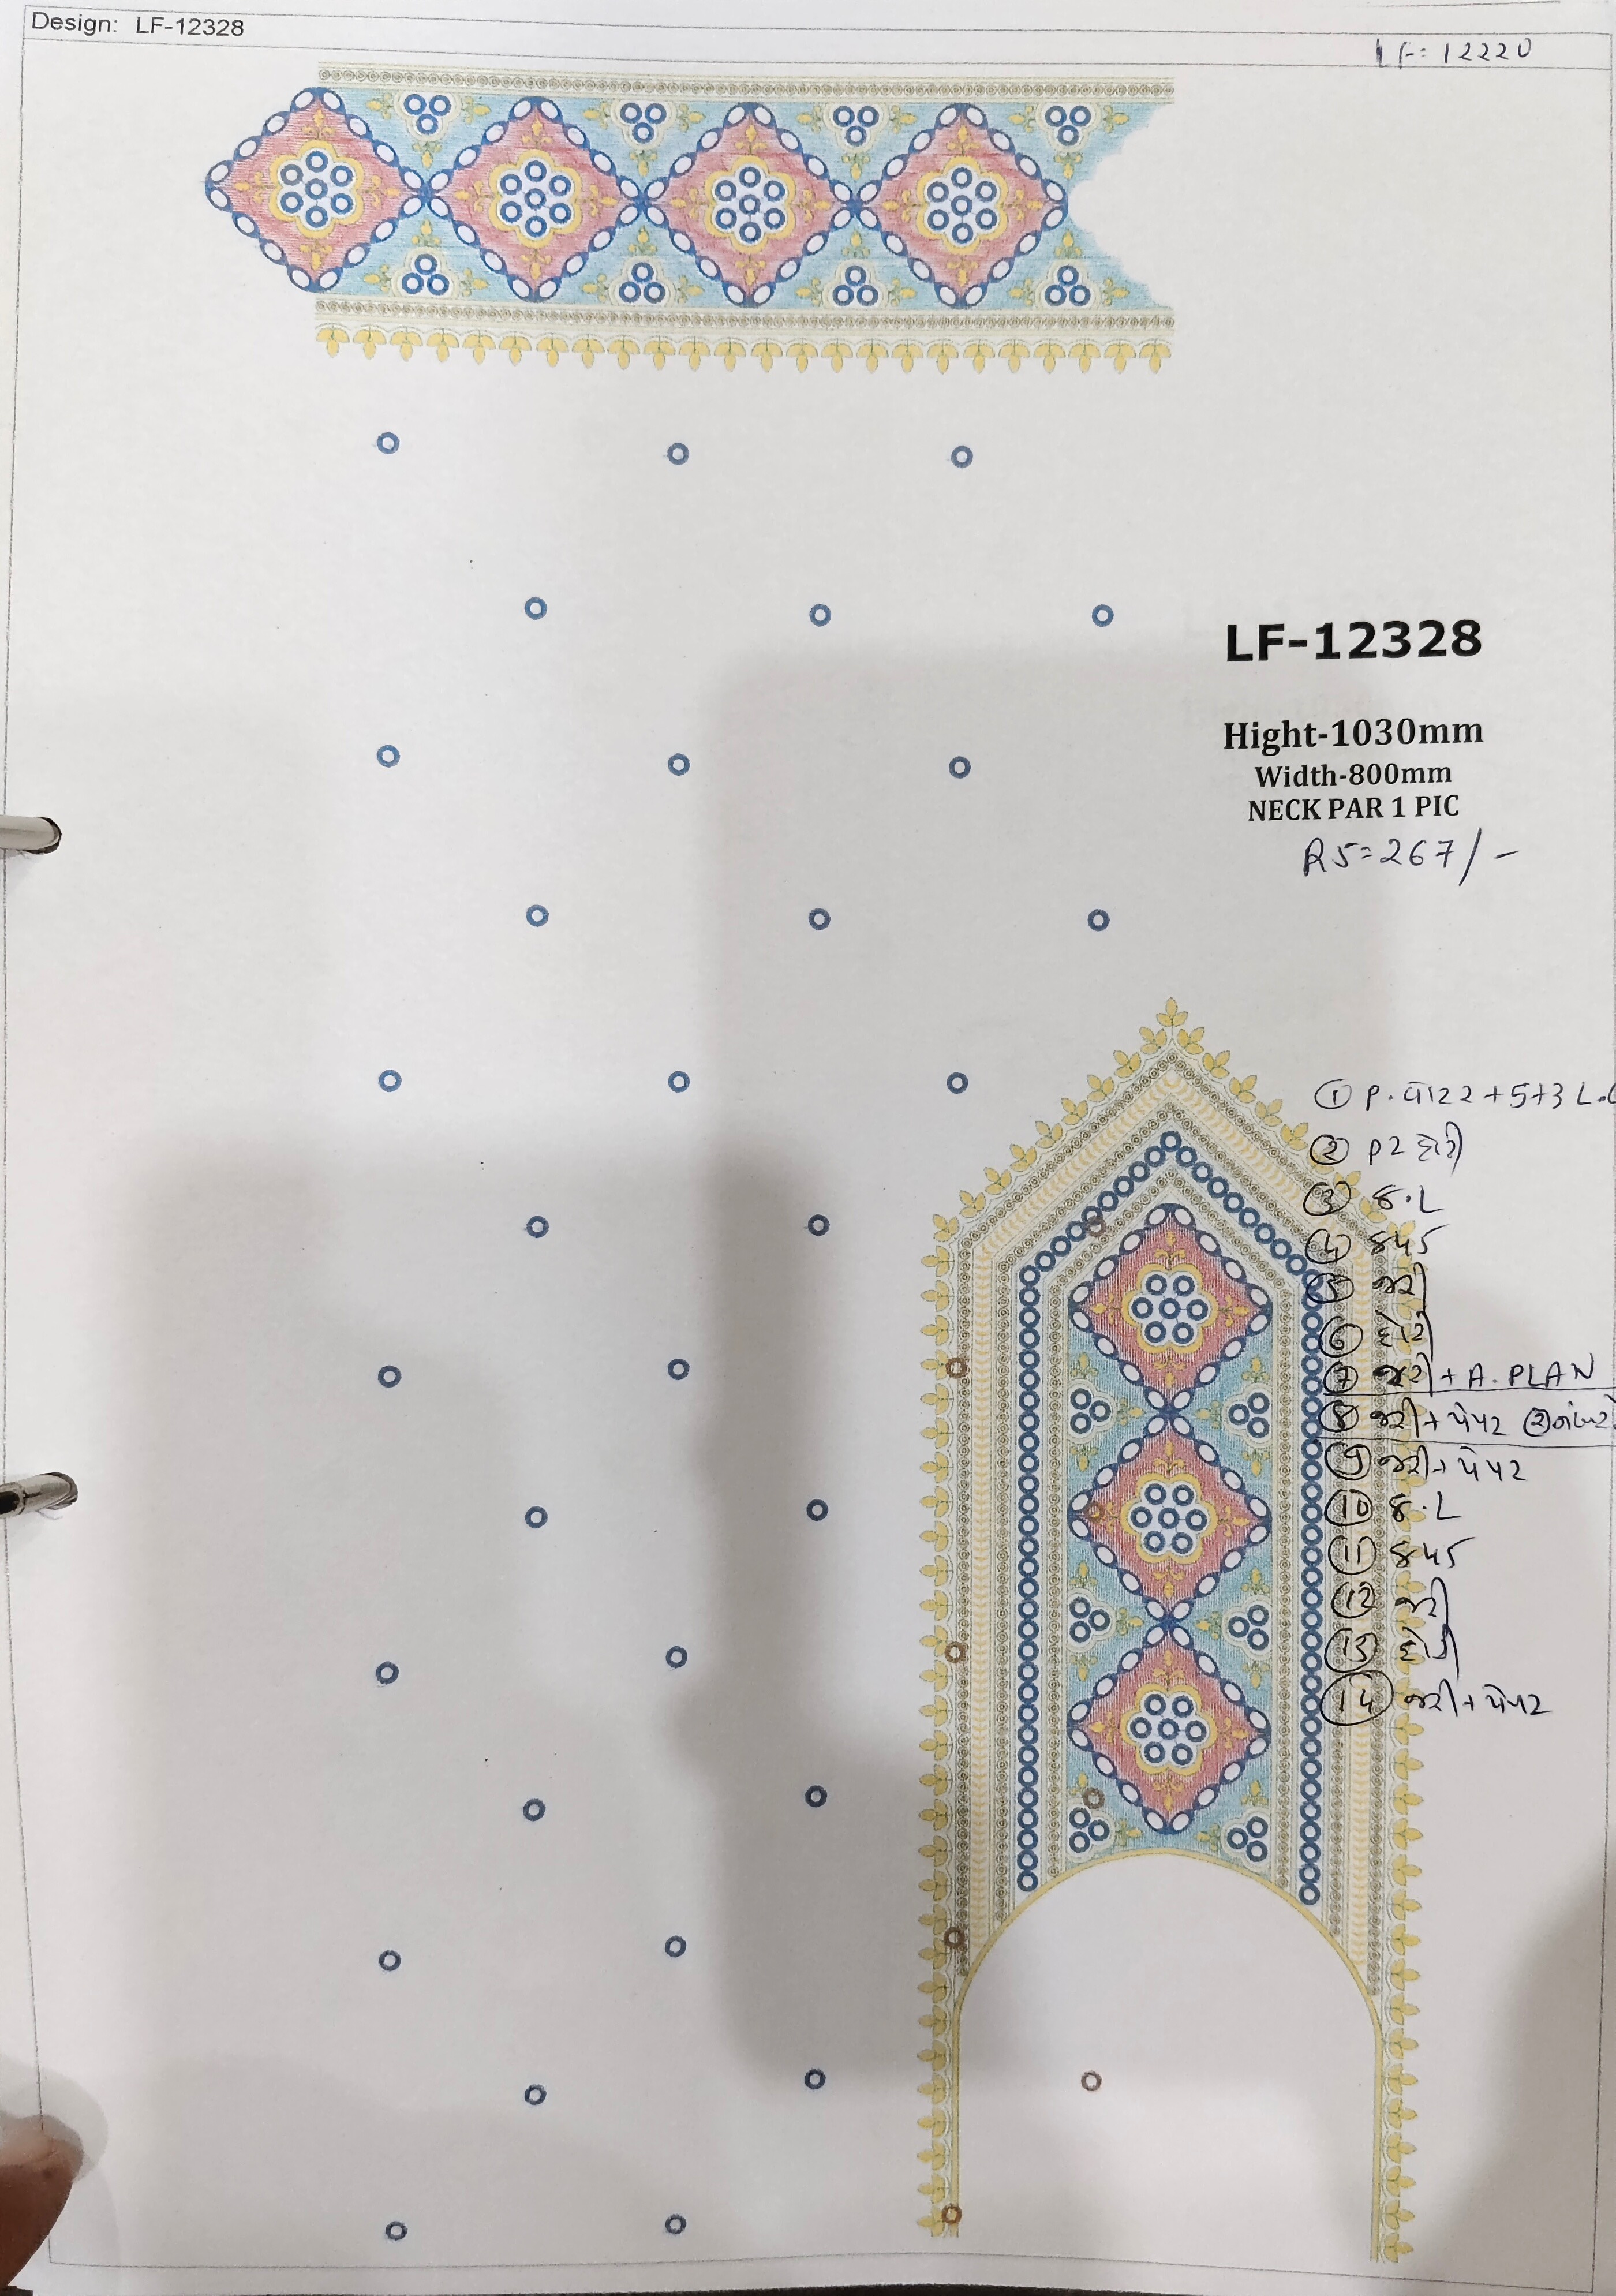 Design: LF-12328
LF= 12220
LF-12328
Hight-1030mm
Width-800mm
NECK PAR 1 PIC
RS=267/-
① P. વોટર + 5+3 L.
② P2 દોરી
③ ઠ.L
④ ઠ45
⑤ જરી
⑥ દોરી
⑦ જરી + A. PLAN
⑧ જરી + પેપર ②નંબર
⑨ જરી + પેપર
⑩ ઠ.L
⑪ ઠ45
⑫ જરી
⑬ દોરી
⑭ જરી + પેપર